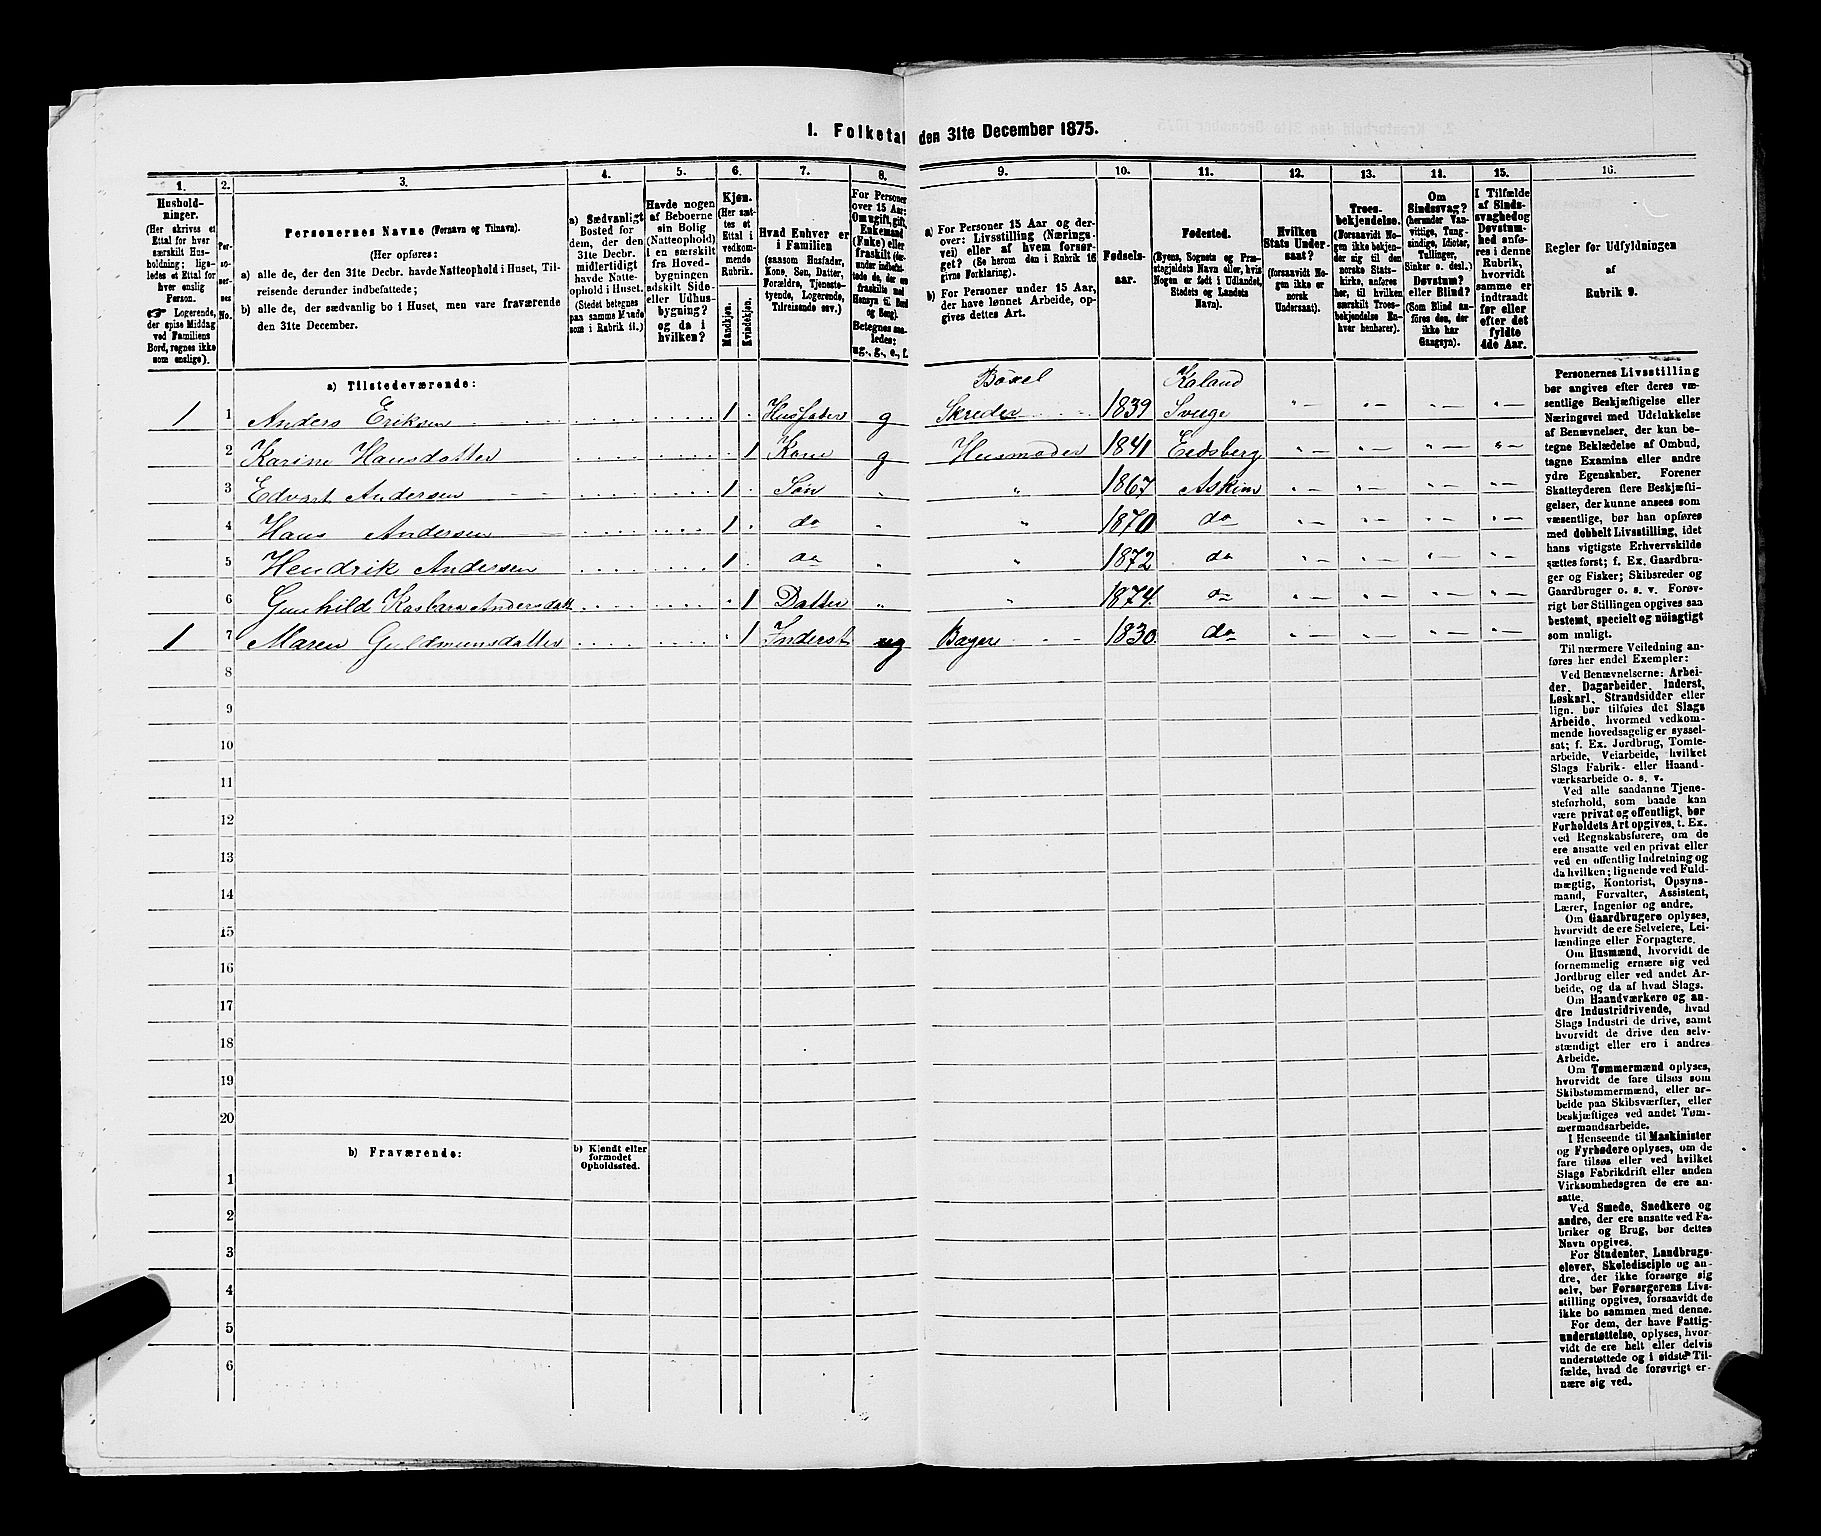 1. Folketal den 31te December 1875.
1. 2. 3. 4. 5. 6. 7. 8. 9. 10. 11. 12. 13. 14. 15. 16.
Hushold-
ninger.
(Her skrives et
Ettal for hver
særskilt Hus-
holdning; lige-
ledes et Ettal for
hver enslig
Person.
☞ Logerende,
der spise Middag
ved Familiens
Bord, regnes ikke
som enslige).
Per-
so-
ner-
nes
No.
Personernes Navne (Fornavn og Tilnavn).
(Her opføres:
a) alle de, der den 31te Decbr. havde Natteophold i Huset, Til-
reisende derunder indbefattede;
b) alle de, der sædvanlig bo i Huset, men vare fraværende
den 31te December.
a) Sædvanligt
Bosted for
dem, der den
31te Decbr.
midlertidigt
havde Natte-
ophold i Huset.
(Stedet betegnes
paa samme Maade
som i Rubrik 11.)
Havde nogen
af Beboerne
sin Bolig
(Natteophold)
i en særskilt
fra Hoved-
bygningen
adskilt Side-
eller Udhus-
bygning?
og da i
hvilken?
Kjøn.
(Her sæt-
tes et
Ettal i
vedkom-
mende
Rubrik.
Mandkjøn.
Kvindekjøn.
Hvad Enhver er
i Familien
(saasom Husfader,
Kone, Søn, Datter,
Forældre, Tjeneste-
tyende, Logerende,
Tilreisende osv.)
For Personer
over 15 Aar:
Om ugift, gift,
Enkemand
(Enke) eller
fraskilt
Betegnes saa-
ledes:
ug., g., e., f.
a) For Personer 15 Aar og der-
over: Livsstilling (Nærings-
vei) eller af hvem forsør-
get? (Se herom den i Rubrik 16
givne Forklaring).
b) For Personer under 15 Aar,
der have lønnet Arbeide, op-
gives dettes Art.
Fødsels-
aar.
Fødested.
(Byens, Sognets og Præ-
stegjeldets Navn eller, hvis
Nogen er født i Udlandet,
Stedets og Landets
Navn).
Hvilken
Stats Under-
saat?
(forsaavidt No-
gen ikke er
norsk
Undersaat).
Troes-
bekjendelse.
(Forsaavidt No-
gen ikke bekjen-
der sig til den
norske Stats-
kirke, anføres
her, til hvilken
særskilt Troes-
bekjendelse En-
hver henhører).
Om
Sindssvag?
(herunder Van-
vittige, Tung-
sindige, Idioter,
Tullinger,
Sinker o. desl.)
Døvstum?
eller Blind?
(Som Blind an-
føres den, der
ikke har
Gangsyn).
I Tilfælde
af Sinds-
svaghed og
Døvstum-
hed anfø-
res i denne
Rubrik,
hvorvidt
samme er
indtraadt
før eller
efter det
fyldte
4de Aar.
Regler for Udfyldningen
af
Rubrik 9.
a) Tilstedeværende:
Bøxel Kaland
1 1 Anders Eriksen 1 Husfader g Skreder 1839 Sverge
2 Karine Hansdatter 1 Kone g Husmoder 1841 Eidsberg
3 Edvart Andersen 1 Søn 1867 Askim
4 Hans Andersen 1 do 1870 do
5 Hendrik Andersen 1 do 1872 do
6 Gunhild Andersdatt 1 Datter 1874 do
1 7 Maren Guldmunsdatter 1 Inderst ug Bager 1830 do
8
9
10
11
12
13
14
15
16
17
18
19
20
b) Fraværende:
b) Kjendt eller
formodet
Opholdssted.
1
2
3
4
5
6
Personernes Livsstilling
bør angives efter deres væ-
sentlige Beskjæftigelse eller
Næringsvei med Udelukkelse
af Benævnelser, der kun be-
tegne Beklædelse af Ombud,
tagne Examina eller andre
ydre Egenskaber. Forener
Skatteyderen flere Beskjæfti-
gelser, der kunne ansees som
væsentlige, bør han opføres
med dobbelt Livsstilling, idet
hans vigtigste Erhvervskilde
sættes først; f. Ex. Gaardbru-
ger og Fisker; Skibsreder og
Gaardbruger o. s. v. Forøv-
rigt bør Stillingen opgives saa
bestemt, specielt og nöiagtigt
som muligt.
Til nærmere Veiledning an-
føres her endel Exempler:
Ved Benævnelserne: Arbei-
der, Dagarbeider, Inderst,
Løskarl, Strandsidder eller
lign. bør tilføies det Slags
Arbeide, hvormed vedkom-
mende hovedsagelig er syssel-
sat; f. Ex. Jordbrug, Tomte-
arbeide, Veiarbeide, hvilket
Slags Fabrik- eller Haand-
værksarbeide o. s. v.
Ved alle saadanne Tjene-
steforhold, som baade kan
være privat og offentligt, bør
Forholdets Art opgives, t. Ex.
ved Regnskabsførere, om de
ere ansatte ved en privat eller
ved en offentlig Indretning og
da hvilken; lignende ved Fuld-
mægtig, Kontorist, Opsyns-
mand, Forvalter, Assistent,
Lærer, Ingeniør og andre.
Om Gaardbrugere oplyses,
hvorvidt de ere Selveiere, Lei-
lændinge eller Forpagtere.
Om Husmænd, hvorvidt de
fornemmelig ernære sig ved
Jordbrug eller ved andet Ar-
beide, og da af hvad Slags.
Om Haandværkere og an-
dre Industridrivende, hvad
Slags Industri de drive, samt
hvorvidt de drive den selv-
stændigt eller ere i andres
Arbeide.
Om Tømmermænd oplyses,
hvorvidt de fare tilsøs som
Skibstømmermænd, eller ar-
beide paa Skibsværfter, eller
beskjæftiges ved andet Tøm-
mermandsarbeide.
I Henseende til Maskinister
og Fyrbødere oplyses, om de
fare tilsøs eller ved hvilket
Slags Fabrikdrift eller anden
Virksomhedsgren de ere an-
satte.
Ved Smede, Snedkere og
andre, der ere ansatte ved Fa-
briker og Brug, bør dettes
Navn opgives.
For Studenter, Landbrugs-
elever, Skoledisciple og an-
dre, der ikke forsørge sig
selv, bør Forsørgerens Livs-
stilling opgives, forsaavidt de
ikke bo sammen med denne.
For dem, der have Fattig-
understøttelse, oplyses, hvor-
vidt de ere helt eller delvis
understøttede og i sidste Til-
fælde, hvad de forøvrigt er-
nære sig ved.